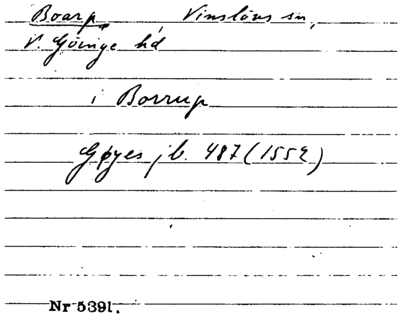 Boarp, Vinslövs sn,
V. Göinge hd
i Borrup
Gøyes jb. 487 (1552)
Nr 5391.